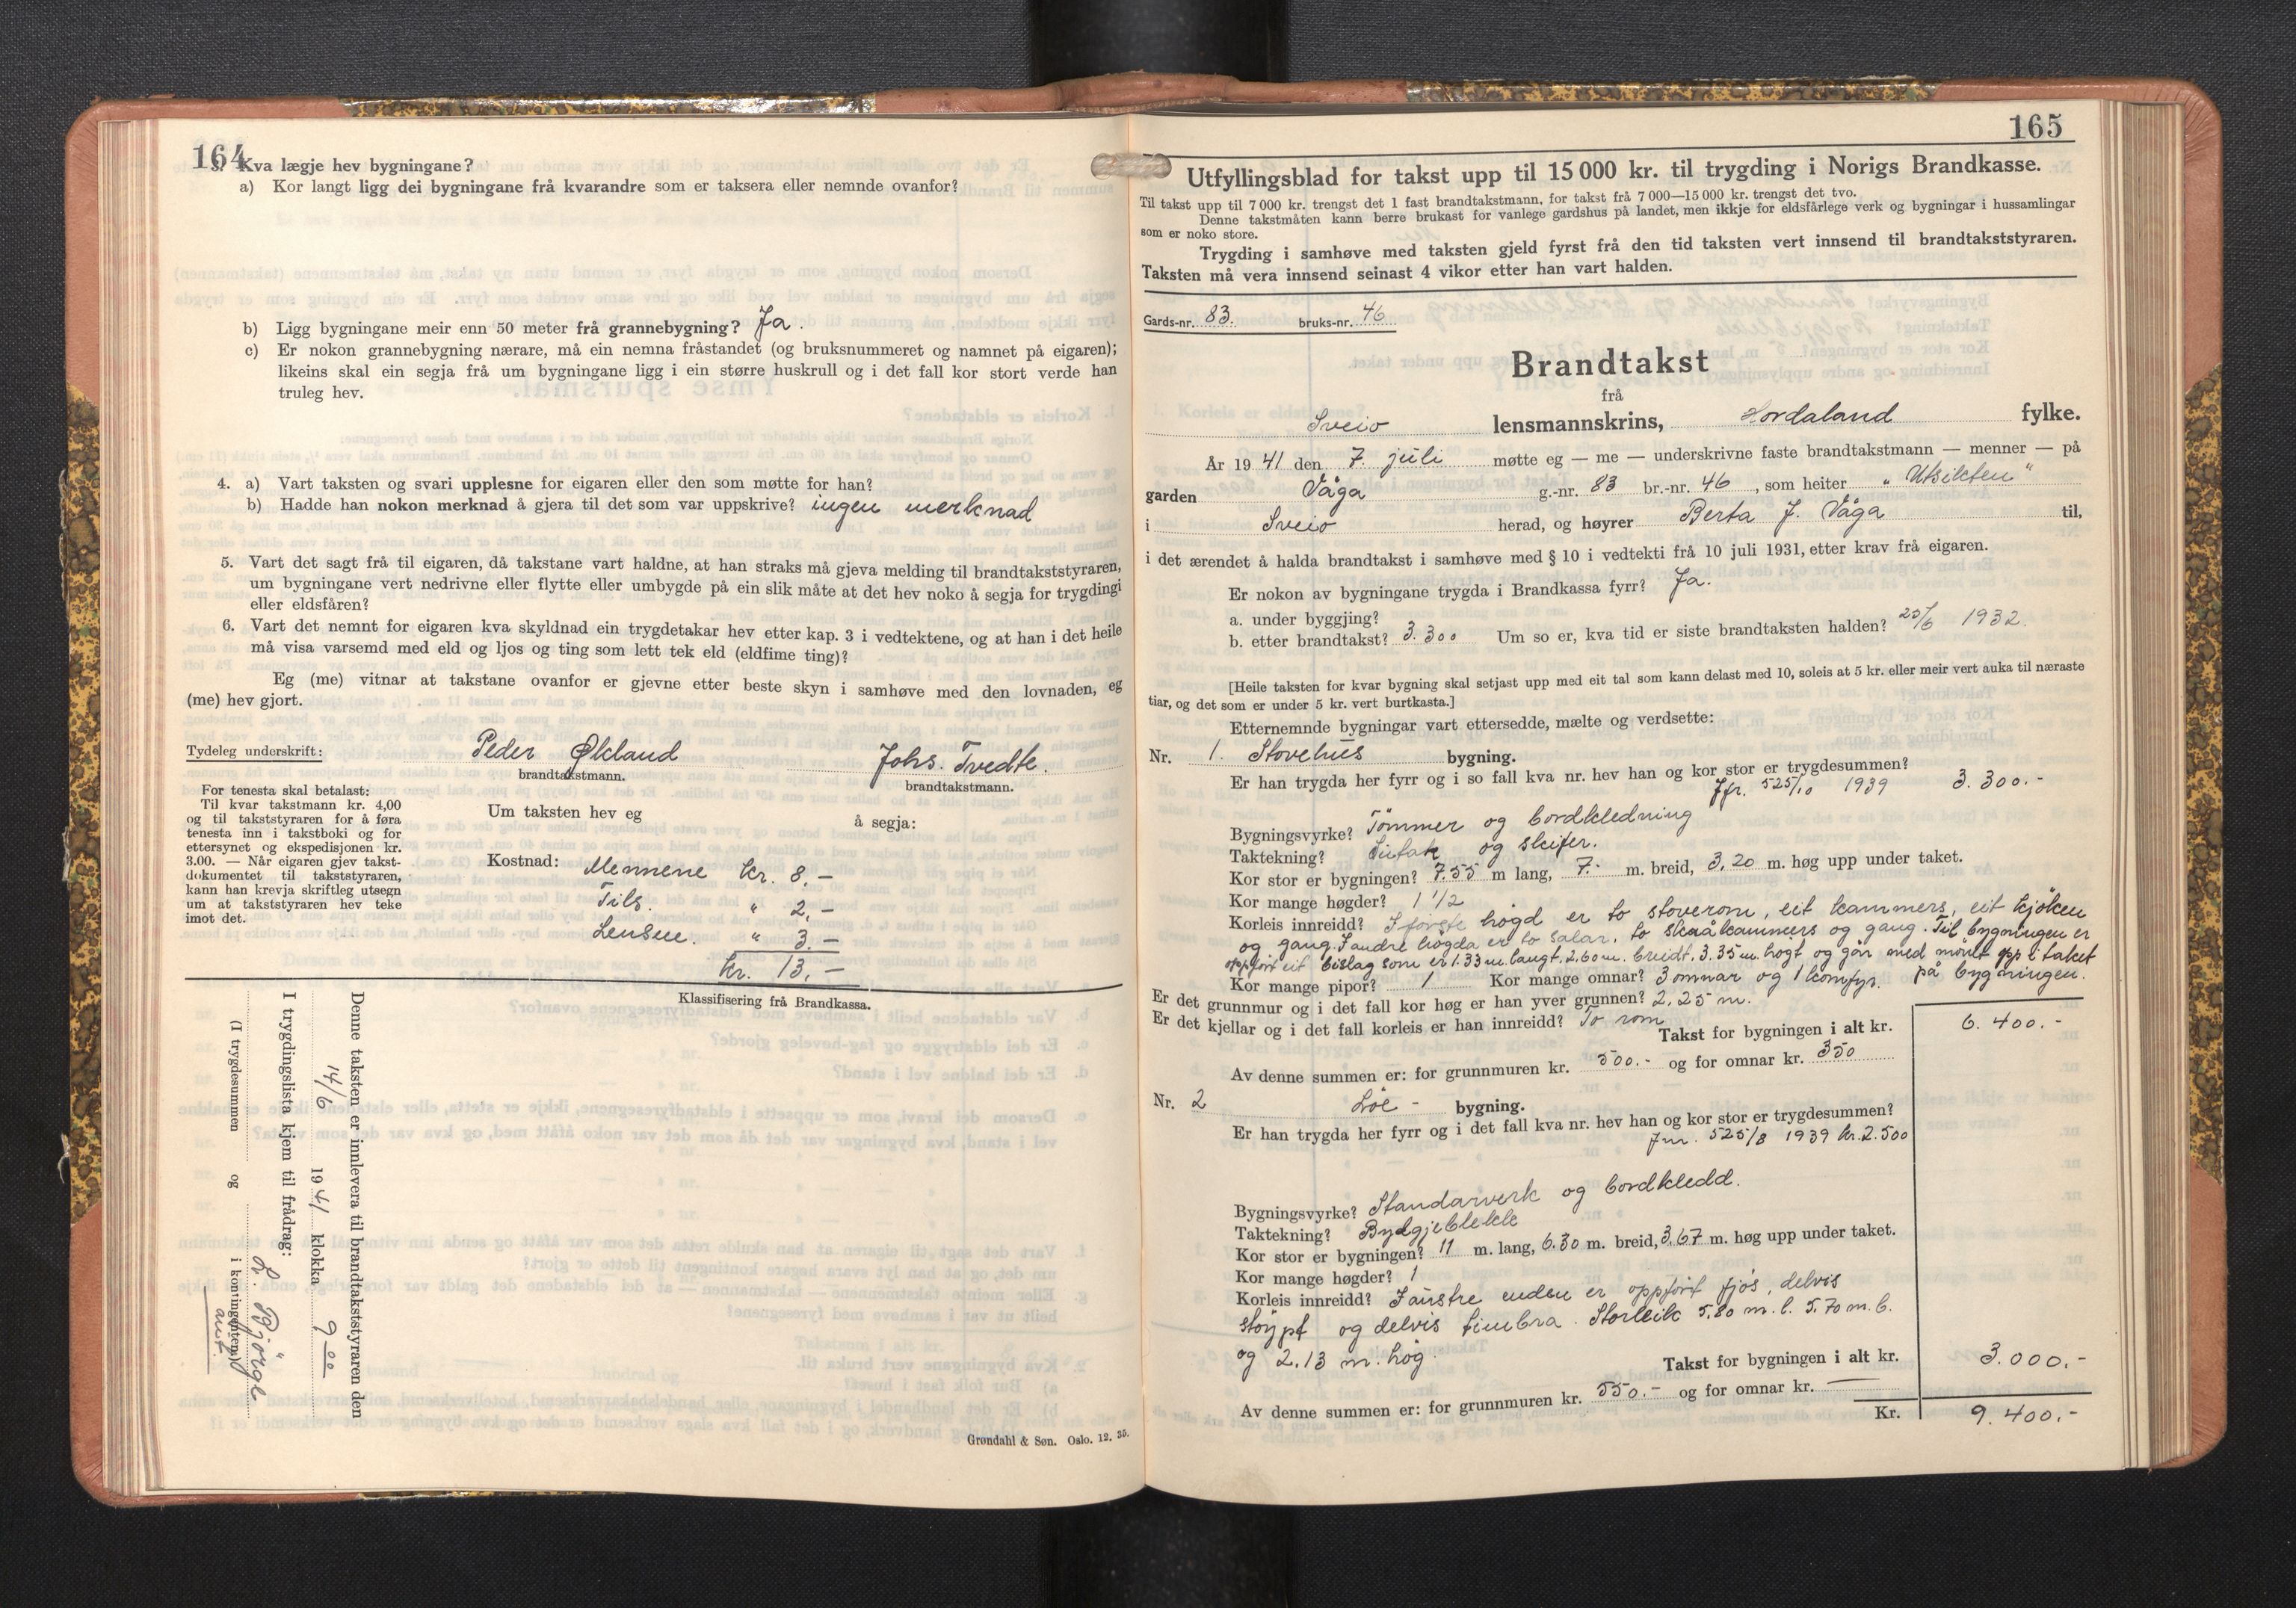 164
3. Kva lægje hev bygningane?
a) Kor langt ligg dei bygningane frå kvarandre som er taksera eller nemnde ovanfor?
b) Ligg bygningane meir enn 50 meter frå grannebygning? Ja.
c) Er nokon grannebygning nærare, må ein nemna fråstandet (og bruksnummeret og namnet på eigaren);
likeins skal ein segja frå um bygningane ligg i ein større huskrull og i det fall kor stort verde han
truleg hev.
4. a) Vart taksten og svari upplesne for eigaren eller den som møtte for han?
b) Hadde han nokon merknad å gjera til det som var uppskrive? ingen merknad
5. Vart det sagt frå til eigaren, då takstane vart haldne, at han straks må gjeva melding til brandtakststyraren,
um bygningane vert nedrivne eller flytte eller umbygde på ein slik måte at det hev noko å segja for trygdingi
eller eldsfåren?
6. Vart det nemnt for eigaren kva skyldnad ein trygdetakar hev etter kap. 3 i vedtektene, og at han i det heile
må visa varsemd med eld og ljos og ting som lett tek eld (eldfime ting)?
Eg (me) vitnar at takstane ovanfor er gjevne etter beste skyn i samhøve med den lovnaden, eg
(me) hev gjort.
Tydeleg underskrift: Peder Økland Johs. Tvedte.
brandtakstmann. brandtakstmann.
For tenesta skal betalast:
Til kvar takstmann kr. 4,00
og til takststyraren for å føra
tenesta inn i takstboki og for
ettersynet og ekspedisjonen kr.
3.00. — Når eigaren gjev takst-
dokumentet til takststyraren,
kann han krevja skriftleg utsegn
um at takststyraren hev teke
imot det.
Um taksten hev eg å segja:
Kostnad: Mennene kr. 8,-
Tils. " 2,-
Lensm. " 3.-
Kr. 13,-
Klassifisering frå Brandkassa.
Denne taksten er innlevera til brandtakststyraren den
14/6 1941 klokka 9 00
I trygdingslista kjem til frådrag:
L. Bjørge
(I trygdesummen og i kontingenten)
Grøndahl & Søn. Oslo. 12. 35.
165
Utfyllingsblad for takst upp til 15 000 kr. til trygding i Norigs Brandkasse.
Til takst upp til 7 000 kr. trengst det 1 fast brandtakstmann, for takst frå 7 000—15 000 kr. trengst det tvo.
Denne takstmåten kann berre brukast for vanlege gardshus på landet, men ikkje for eldsfårlege verk og bygningar i hussamlingar
som er noko store.
Trygding i samhøve med taksten gjeld fyrst frå den tid taksten vert innsend til brandtakststyraren.
Taksten må vera innsend seinast 4 vikor etter han vart halden.
Gards-nr. 83. bruks-nr. 46
Brandtakst
frå
Sveio lensmannskrins, Hordaland fylke.
År 1941 den 7. juli møtte eg — me — underskrivne faste brandtakstmann — menner — på
garden Våga g.-nr. 83 br.-nr. 46, som heiter „Utsikten"
i Sveio herad, og høyrer Berta J. Våga til,
i det ærendet å halda brandtakst i samhøve med § 10 i vedtekti frå 10 juli 1931, etter krav frå eigaren.
Er nokon av bygningane trygda i Brandkassa fyrr? Ja.
a. under byggjing?
b. etter brandtakst? 3.300 Um so er, kva tid er siste brandtaksten halden? 25/6 1932.
[Heile taksten for kvar bygning skal setjast upp med eit tal som kann delast med 10, soleis at 5 kr. eller meir vert auka til næraste
tiar, og det som er under 5 kr. vert burtkasta.]
Etternemnde bygningar vart ettersedde, mælte og verdsette:
Nr. 1. Stovehus bygning.
Er han trygda her fyrr og i so fall kva nr. hev han og kor stor er trygdesummen?
Jfr. 525/10 1939 3.300.-
Bygningsvyrke? Tömmer og bordkledning
Taktekning? Sutak og skifer.
Kor stor er bygningen? 7.55 m lang, 7.- m. breid, 3,20 m. høg upp under taket.
Kor mange høgder? 1 1/2
Korleis innreidd? I første høgd er to stoverom, eit kammers, eit kjöken
og gang. I andre høgda er to salar, to skråkammers og gang. Til bygningen er
oppført eit bislag som er 1.33 m. langt, 2.60 m. breidt, 3.35 m. høgt og går med mönet opp i taket
på bygningen.
Kor mange pipor? 1 Kor mange omnar? 3 omnar og 1 komfyr.
Er det grunnmur og i det fall kor høg er han yver grunnen? 2,25 m.
Er det kjellar og i det fall korleis er han innreidd? To rom
Takst for bygningen i alt kr. 6.400.-
Av denne summen er: for grunnmuren kr. 500.- og for omnar kr. 350
Nr. 2 Löe- bygning.
Er han trygda her fyrr og i det fall kva nr. hev han og kor stor er trygdesummen?
525/8 1939 kr. 2.500
Bygningsvyrke? Standarverk og bordkledd.
Taktekning? Bylgjeblekk
Kor stor er bygningen? 11 m. lang, 6.30 m. breid, 3,67 m. høg upp under taket.
Kor mange høgder? 1
Korleis innreidd? I austre enden er oppfört fjös, delvis
stöypt og delvis timbra. Storleik 5.80 m. l. 5.70 m. b.
og 2.13 m. høg.
Takst for bygningen i alt kr. 3.000.-
Av denne summen er: for grunnmuren kr. 550.- og for omnar kr. —
Kr. 9.400.-